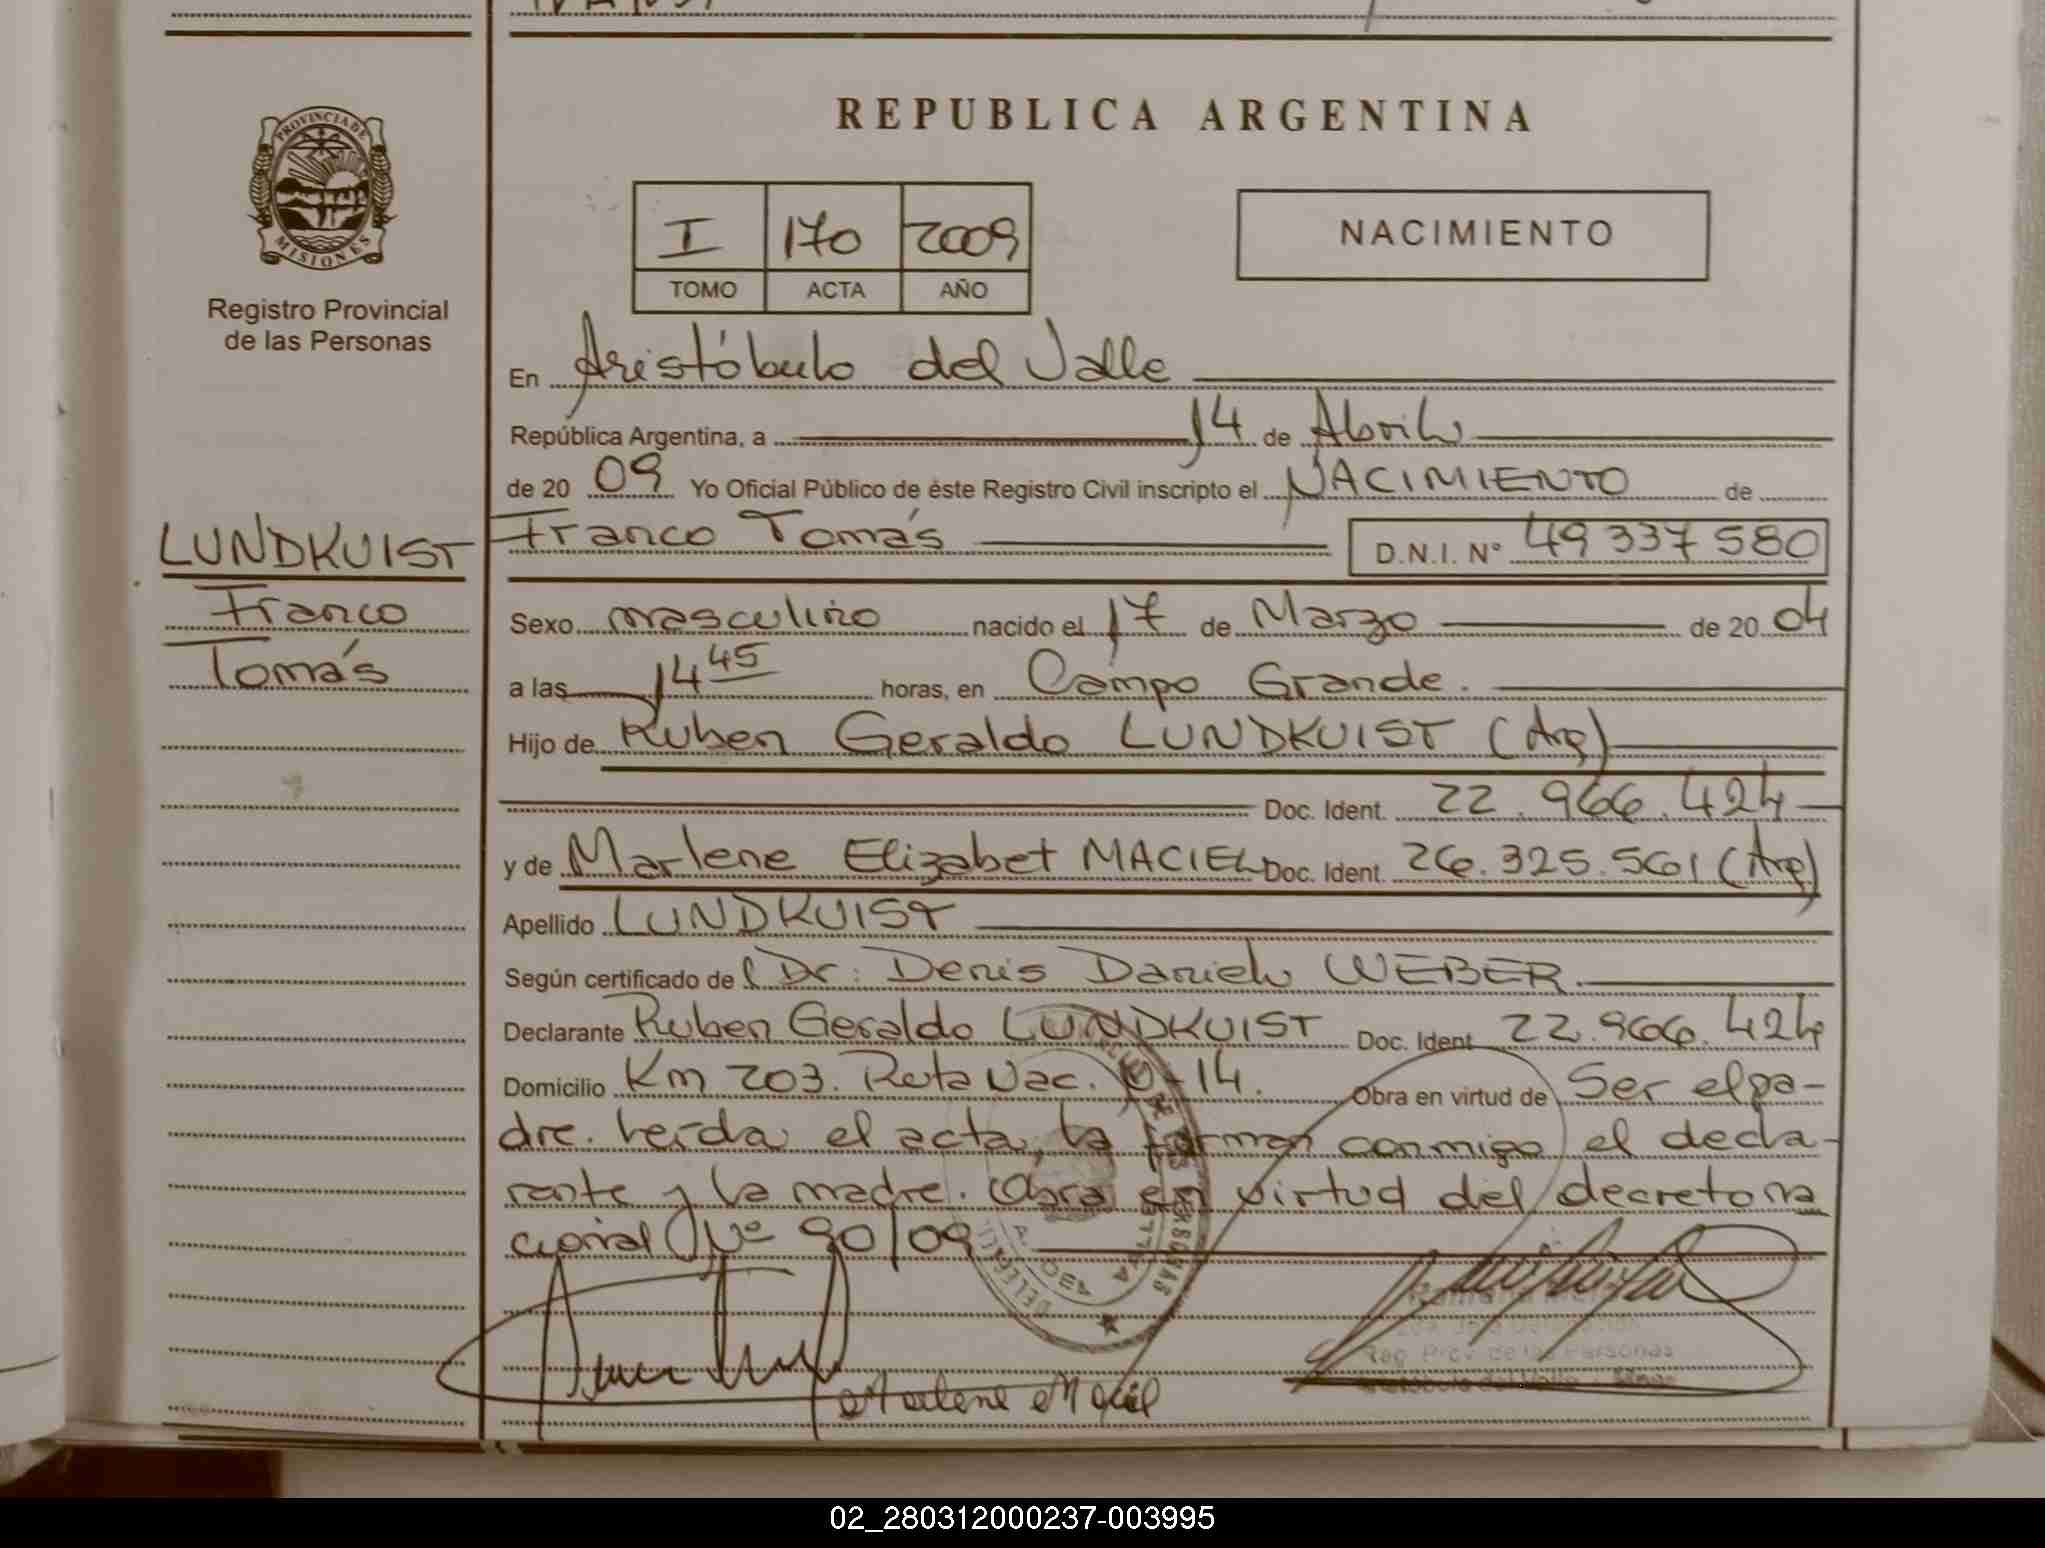 REPUBLICA ARGENTINA
PROVINCIA DE
MISIONES
Registro Provincial
de las Personas
I 170 2009
TOMO ACTA AÑO
NACIMIENTO
En Aristóbulo del Valle
República Argentina, a 14 de Abril
de 2009 Yo Oficial Público de éste Registro Civil inscripto el NACIMIENTO de
LUNDKUIST
Franco
Tomás
Franco Tomás D.N.I. N° 49 337 580
Sexo masculino nacido el 17 de Marzo de 2004
a las 14 45 horas, en Campo Grande.
Hijo de Ruben Geraldo LUNDKUIST (Arg)
Doc. Ident. 22.966.424
y de Marlene Elizabet MACIEL Doc. Ident. 26.325.561 (Arg)
Apellido LUNDKUIST
Según certificado del Dr. Denis Daniel WEBER.
Declarante Ruben Geraldo LUNDKUIST Doc. Ident. 22.966.424
Domicilio Km 203. Ruta Nac. N° 14. Obra en virtud de Ser el pa-
dre. Leída el acta, la firman conmigo el decla-
rante y la madre. Obra en virtud del decreto na
cional N° 90/09
Marlene Maciel
Reg. Prov. de las Personas
02_280312000237-003995